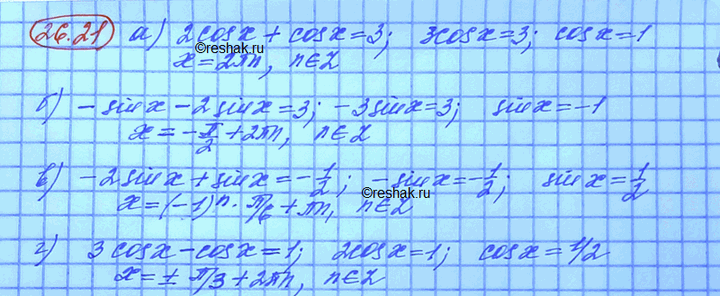 26.21) а) 2cosx + cosx = 3; 3cosx = 3; cosx = 1
©reshak.ru
x = 2πn, n∈Z
б) - sinx - 2sinx = 3; -3sinx = 3; sinx = -1
x = -π/2 + 2πn, n∈Z
в) -2sinx + sinx = -1/2; -sinx = -1/2; sinx = 1/2
©reshak.ru
x = (-1)ⁿ · π/6 + πn, n∈Z
г) 3cosx - cosx = 1; 2cosx = 1; cosx = 1/2
x = ± π/3 + 2πn, n∈Z